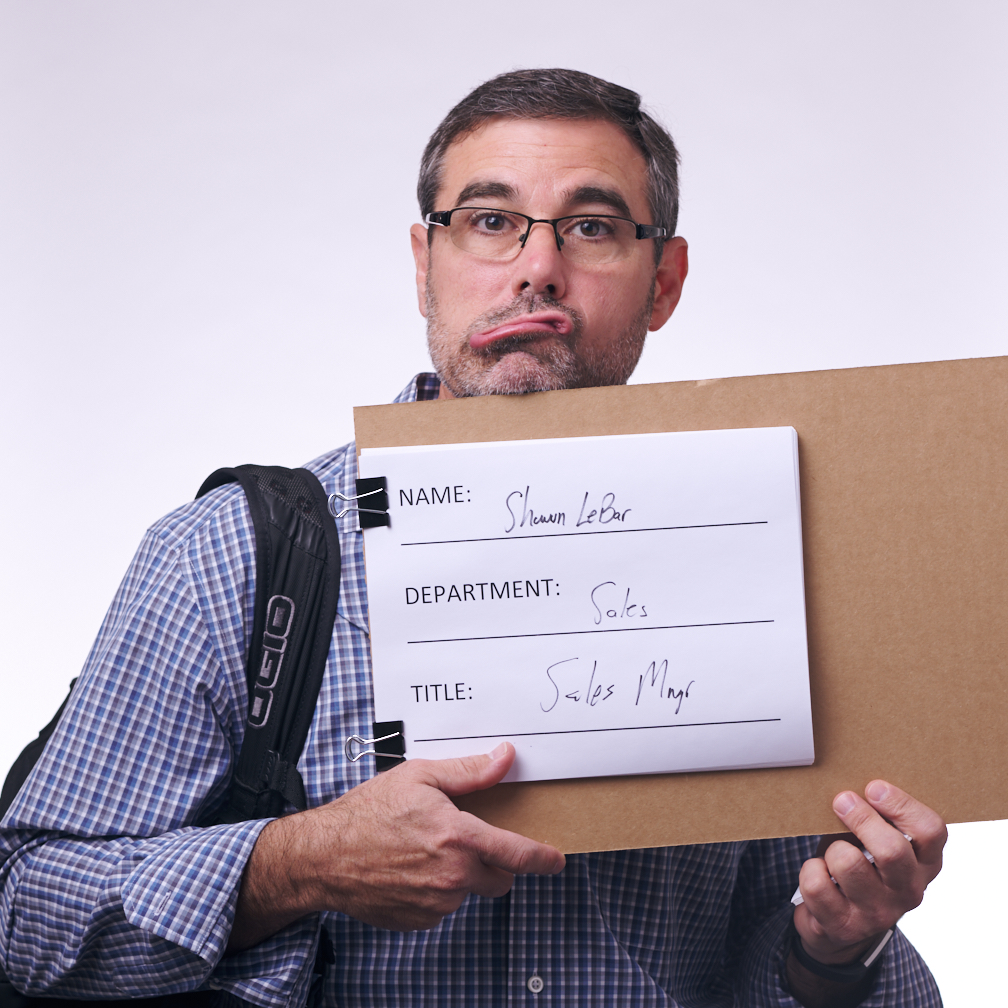 NAME: Shawn LeBar
DEPARTMENT: Sales
TITLE: Sales Mngr
OGIO